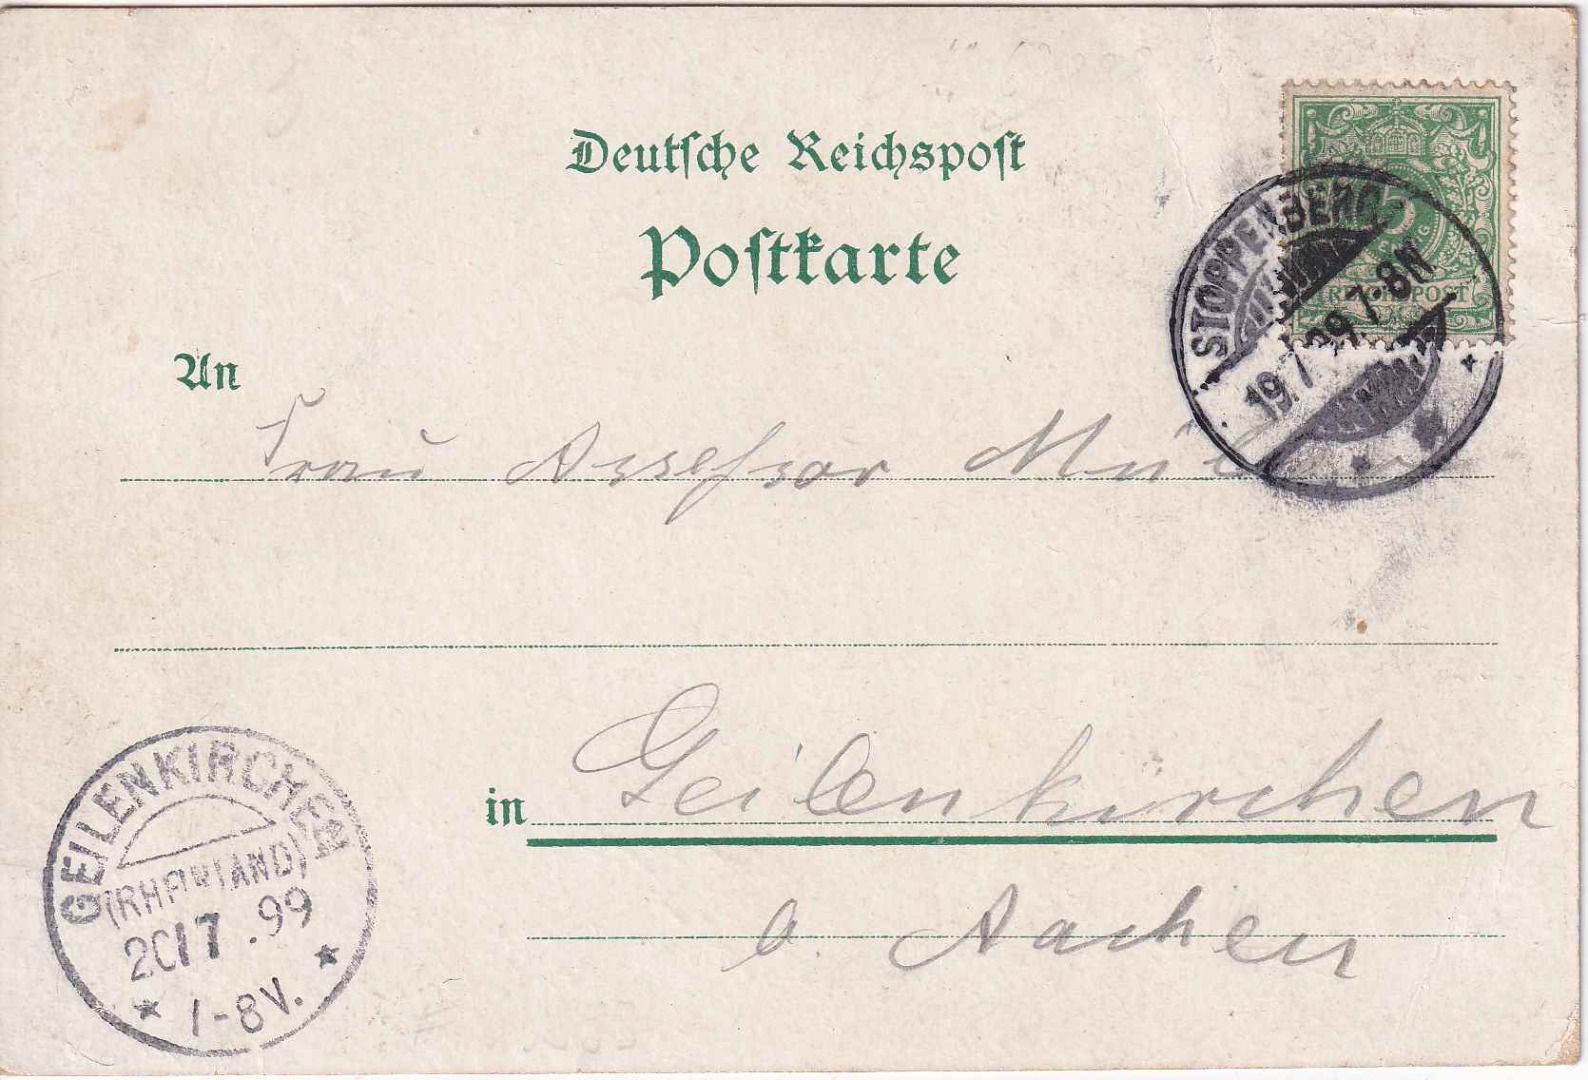 Deutsche Reichspost
Postkarte
5
PFENNIG
REICHSPOST
STOPPENBERG
19.7.99.7-8N
An
Frau Assessor
in Geilenkirchen
b. Aachen
GEILENKIRCHEN
(RHEINLAND)
20/7.99
7-8V.